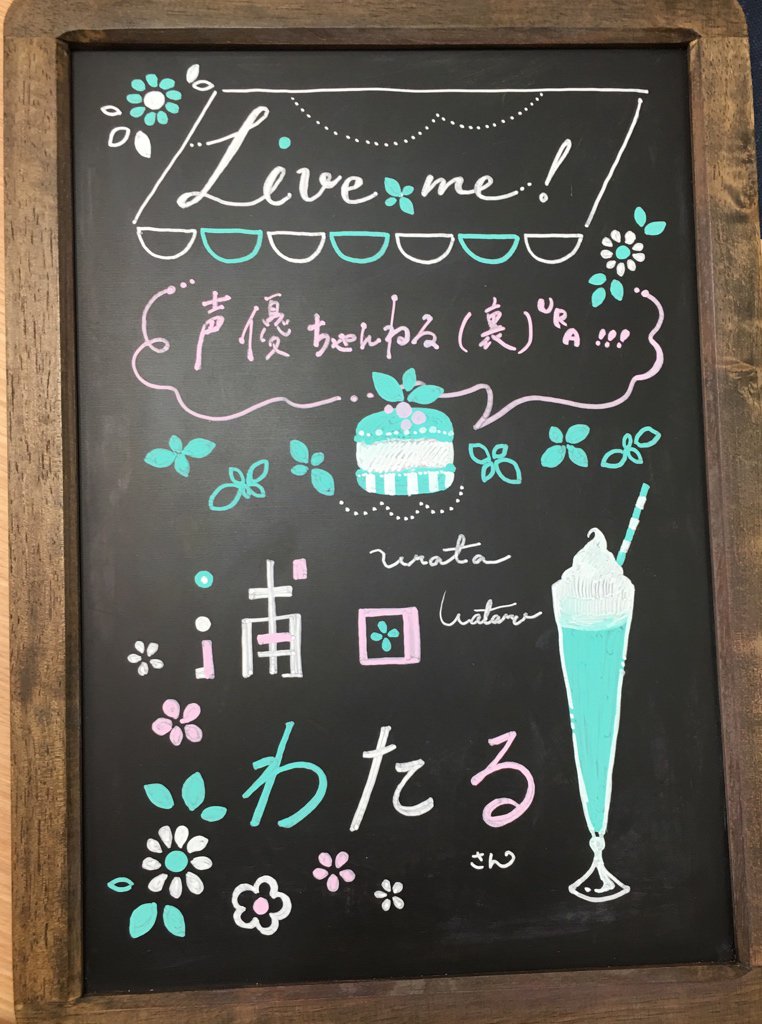 Live me!
声優ちゃんねる(裏)URA!!!
urata
浦田
wataru
わたる
さん